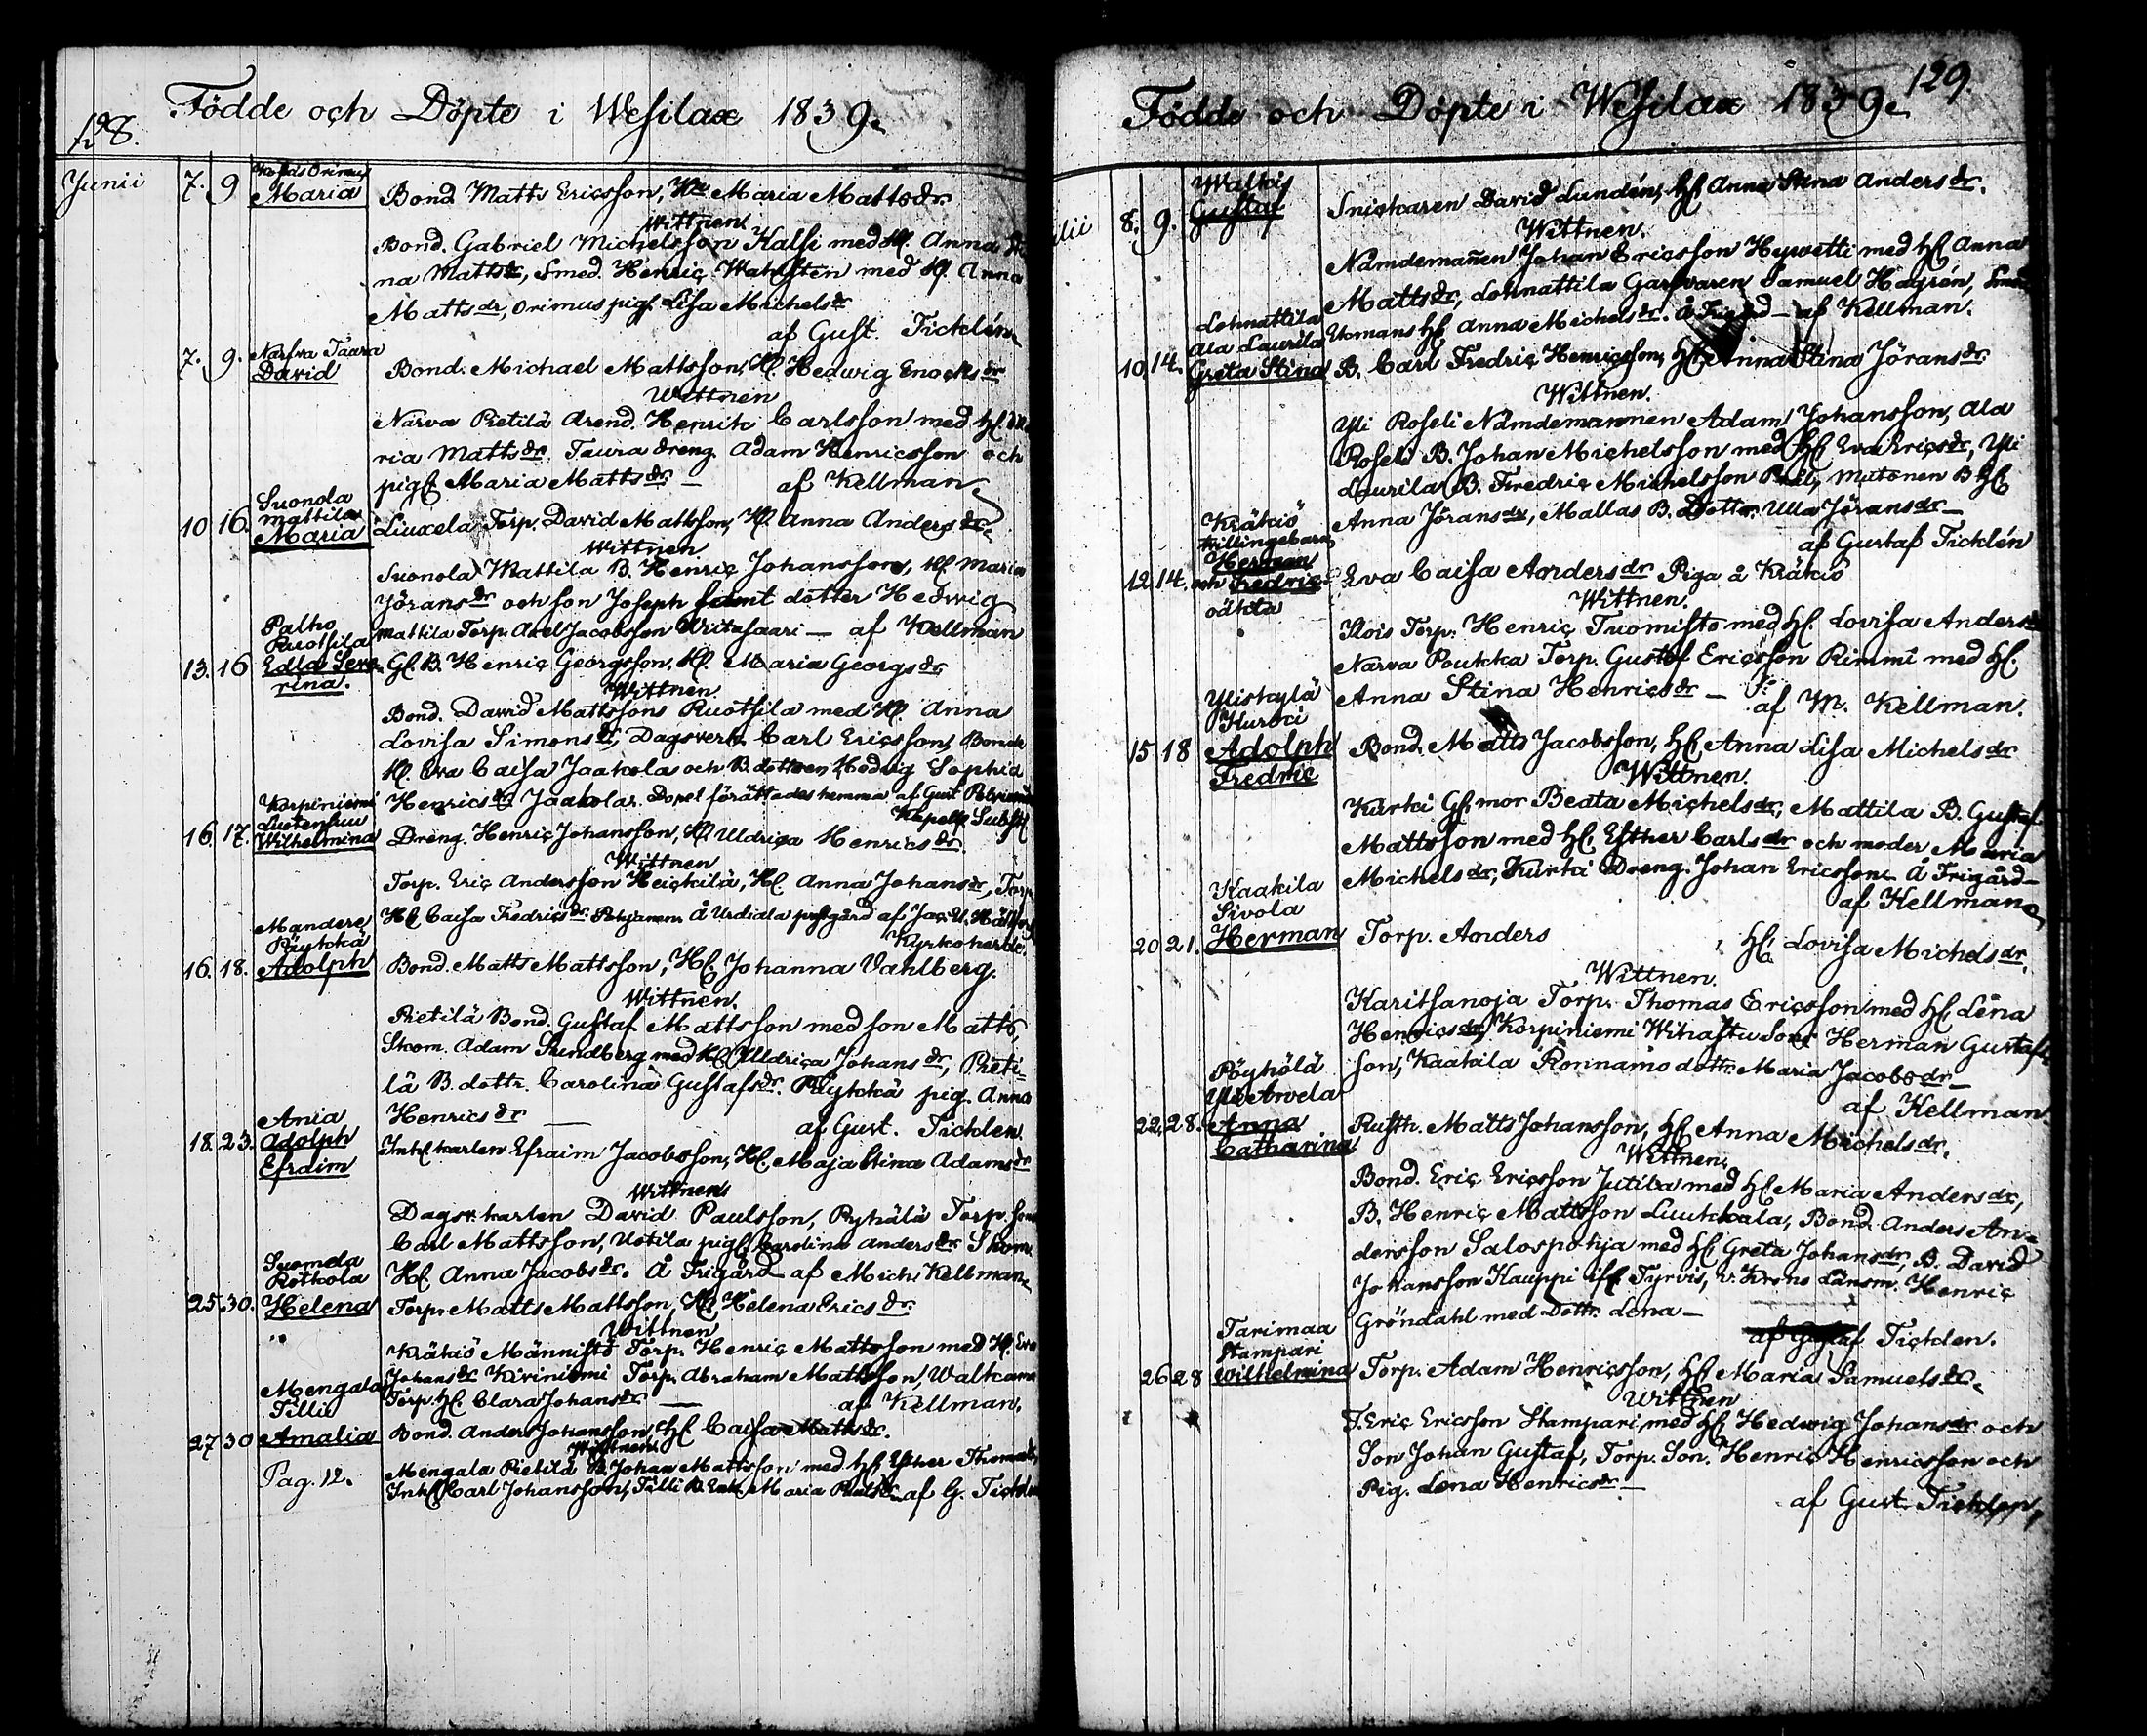 128.
Födde och Döpte i Wesilax 1839.
Junii 7. 9 Orimus
Maria Bond. Matts Ericsson, Hu Maria Mattsdr.
Wittnen
Bond. Gabriel Michelsson Kalsi med Hl. Anna
na Mattsdr, Smed. Henriç Wahlsten med Hl. Anna
Mattsdr, Orimus pigl. Lisa Michelsdr
af Gust. Ticklén.
7. 9. Narfva Taara
David Bond. Michael Mattsson, Hl. Hedwig Enochsdr
Wittnen
Narva Pietilä Arend. Henrik Carlsson med Hl. Ma
ria Mattsdr. Taura dreng. Adam Henricsson och
pigl. Maria Mattsdr — af Kellman
Suonola
Mattila
10 16. Maria Liuxela Torp. David Mattsson, Hl. Anna Andersdr.
Wittnen
Suonola Mattila B. Henriç Johansson, Hl Maria
Jöransdr och son Joseph samt dotter Hedwig
Mattila Torp. Axel Jacobsson Uritasaari — af Kellman
Palho
Ruotsila
13. 16 Edla Seve Gl. B. Henriç Georgsson, Hl. Maria Georgsdr
rina. Wittnen
Bond. David Mattssons Ruotsila med Hl. Anna
Lovisa Simonsdr, Dagsverk. Carl Ericsson, Bonde
Hl. Eva Caisa Jaakola och B. dottren Hedvig Sophia
Henricsdr Jaakola. Dopet förättades hemma af Gust
Korpiniemi
Lustenkuu
16. 17. Wilhelmina Dreng. Henriç Johansson, Hl. Uldriça Henricsdr.
Wittnen
Torp. Eric Andersson Heickilä, Hl. Anna Johansdr, Torp.
Hl Caisa Fredricsdr. Pohjanen. Å Urdiala prstgård af Jac.
Kyrkoherde.
Mandere
Päykkä
16. 18. Adolph Bond. Matts Mattsson, Hl. Johanna Vahlberg.
Wittnen.
Pietilä Bond. Gustaf Mattsson med son Matts,
Skom. Adam Sundberg med Hl Uldriça Johansdr, Pieti-
lä B. dottr. Carolina Gustafsdr. Päykkä pig. Anna
Henricsdr — af Gust. Ticklen.
Ania
18. 23. Adolph Inhl. karlen Efraim Jacobsson, Hl. Maja Stina Adamsdr
Efraim
Wittnen
Dagsv. karlen David Paulsson, Ryhälä Torp. son
Carl Mattsson, Uotila pigl. Carolina Andersdr Skom.
Hl. Anna Jacobsdr. Å Frigård af Mich. Kellman.
Suomela
Rökola
25. 30. Helena Torp. Matts Mattsson, Hl Helena Ericsdr.
Wittnen
Kräkiö Männistö Torp. Henriç Mattsson med Hl. Eva
Johansdr Kiviniemi Torp. Abraham Mattsson, Walkama
Torp. Hl. Clara Johansdr — af Kellman.
Mengala
Tilli
27 30 Amalia Bond. Anders Johansson, Hl. Caisa Mattsdr.
Wittnen
Pag. 12. Mengala Pietilä B. Johan Mattsson med Hl Esther Thomasdr
Inhl Carl Johansson, Tilli B. Enk. Maria Paulsdr — af G. Ticklen
129.
Födde och Döpte i Wesilax 1839.
8. 9. Walkis
Gustaf Snickaren David Lundén, Hl. Anna Stina Andersdr.
Wittnen.
Nämdemannen Johan Ericsson Heywetti med Hl Anna
Mattsdr, Lohnattila Garfvaren Samuel Hagrén, Smed
Utomans Hl Anna Michelsdr. Å Frigård — af Kellman.
Lohnattila
Ala Laurila
10, 14. Greta Stina B. Carl Fredriç Henricsson, Hl Anna Stina Jöransdr
Wittnen.
Yli Roseli Nämdemannen Adam Johansson, Ala
Roseli B. Johan Michelsson med Hl Eva Ericsdr, Yli
Laurila B. Fredriç Michelsson Mutonen B Hl
Anna Jöransdr, Mallas B. Dottr. Ulla Jöransdr —
af Gustaf Ticklén
Kräkiö
tvillingebarn
Herman
12. 14. och Fredriç Eva Caisa Andersdr Piga å Kräkiö
oäkta Wittnen.
Ylois Torp. Henriç Tuomisto med Hl. Lovisa Andersdr
Narva Poukka Torp. Gustaf Ericsson Rimmi med Hl.
Anna Stina Henricsdr — af M. Kellman.
Ylistaylä
Kurki
15 18 Adolph Bond. Matts Jacobsson, Hl. Anna Lisa Michelsdr
Fredriç Wittnen.
Kurki Gl. mor Beata Michelsdr, Mattila B. Gustaf
Mattsson med Hl Esther Carlsdr och moder Maria
Michelsdr, Kurki Dreng. Johan Ericsson. Å Frigård —
af Kellman.
Kaakila
Sivola
20 21. Herman Torp. Anders , Hl. Lovisa Michelsdr.
Wittnen.
Karitsanoja Torp. Thomas Ericsson med Hl. Lena
Henricsdr, Korpiniemi Wihastu Son Herman Gustafs-
son, Kaakila Ronnamo dottr. Maria Jacobsdr —
af Kellman.
Pöyhölä
Yli Arvela
22. 28. Anna Rusth. Matts Johansson, Hl Anna Michelsdr.
Catharina Wittnen.
Bond. Eriç Ericsson Jutila med Hl Maria Andersdr,
B. Henriç Mattsson Luukkala, Bond. Anders An-
dersson Salospohja med Hl Greta Johansdr, B. David
Johansson Kauppi ifr. Tyrvis, v. Krono Länsm. Henriç
Gröndahl med Dottr. Lena —
af Gustaf Ticklen.
Tarimaa
Stampari
26 28 Wilhelmina Torp. Adam Henricsson, Hl Maria Samuelsdr.
Wittnen
T. Eriç Ericsson Stampari med Hl Hedwig Johansdr och
Son Johan Gustaf, Torp. Son. Henriç Henricsson och
Pig. Lena Henricsdr —
af Gust. Ticklen,